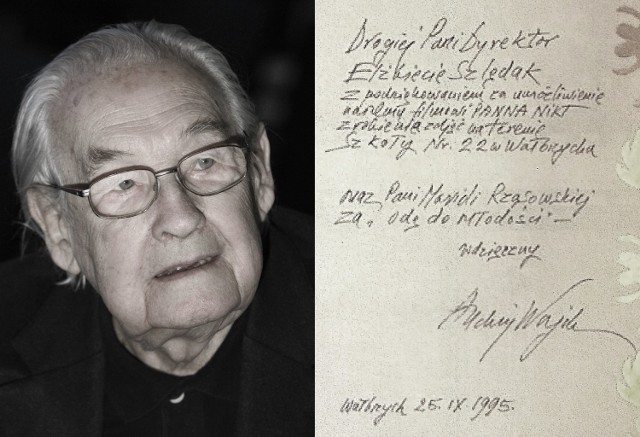 Drogiej Pani Dyrektor
Elżbiecie Szlędak
z podziękowaniem za umożliwienie
naszemu filmowi PANNA NIKT
zrobienia zdjęć na terenie
Szkoły Nr. 22 w Wałbrzychu
oraz Pani Marioli Rząsowskiej
za „odę do młodości" –
wdzięczny
Andrzej Wajda
Wałbrzych 25. IX 1995.